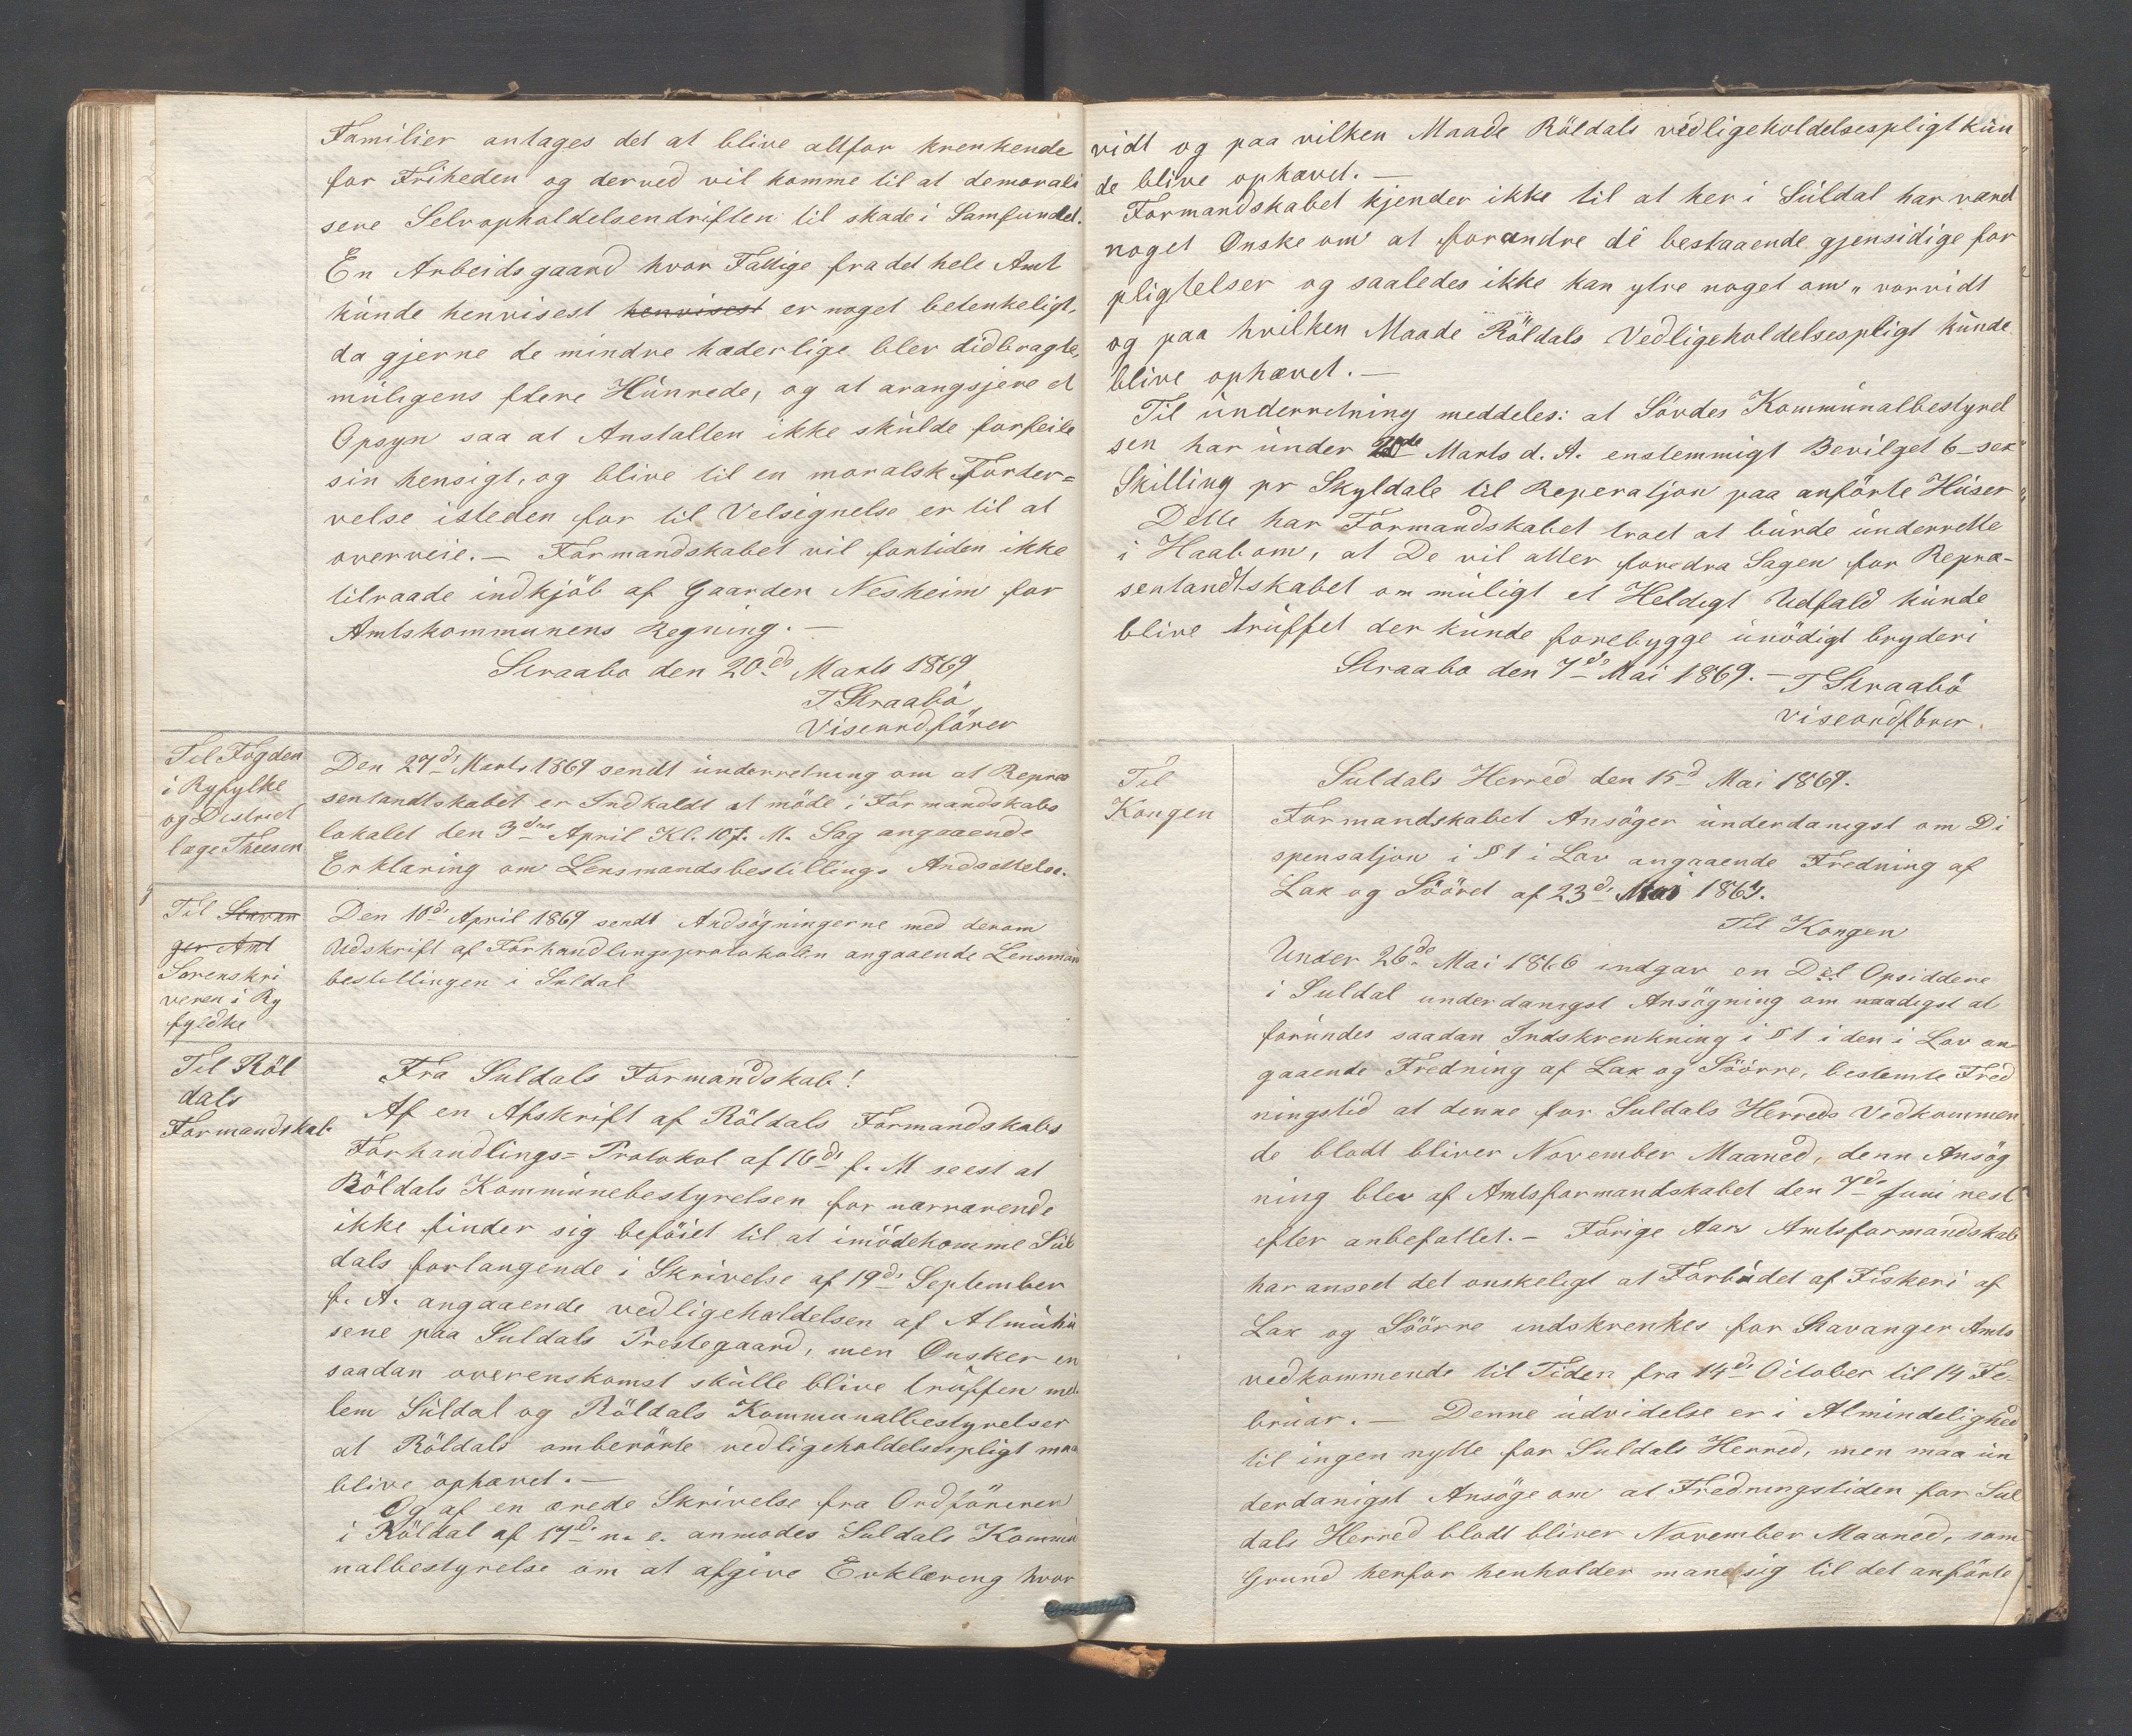 Familier antages det at blive altfor krenkende
for Friheden og derved vil komme til at demorali
sere Selvopholdelsendriften til skade i Samfundet.
En Arbeidsgaard hvor Fattige fra det hele Amt
kunde henvisest henvisest er noget betenkeligt,
da gjerne de mindre hæderlige blev didbragte,
muligens flere Hunrede, og at arangsjere et
Opsyn saa at Anstalten ikke skulde forfeile
sin hensigt, og blive til en moralsk Forder=
velse isteden for til Velsignelse er til at
overveie. — Formandskabet vil fortiden ikke
tilraade indkjöb af Gaarden Nesheim for
Amtskommunens Regning. —
Straabø den 20de Marts 1869
T Straabö
Viseordförer
Til Fogden
i Ryfylke
og District
læge Theesen
Den 27de Marts 1869 sendt underretning om at Repræ
sentandtskabet er Indkaldt at möde i Formandskabs
lokalet den 3die April Kl. 10 f. M. Sag angaaende
Erklæring om Lensmandsbestillings Andsettelse.
Til Stavan
ger Amt
Sorenskri
veren i Ry
fyldke
Den 10de April 1869 sendt Andsögningerne med derom
Udskrift af Forhandlingsprotokolen angaaende Lensmans
bestillingen i Suldal
Til Röl
dals
Formandskab.
Fra Suldals Formandskab!
Af en Afskrift af Röldals Formandskabs
Forhandlings= Protokol af 16de f. M seest at
Röldals Kommunebestyrelsen for nærværende
ikke finder sig beföiet til at imödekomme Sul
dals forlangende i Skrivelse af 19de September
f. A. angaaende vedligeholdelsen af Almuhu
sene paa Suldals Prestegaard, men Ønsker en
saadan overenskomst skulle blive truffen mel
lem Suldal og Röldals Kommunalbestyrelser
at Röldals omberörte vedligeholdelsespligt maa
blive ophævet. —
Og af en ærede Skrivelse fra Ordföreren
i Röldal af 17de n. e. anmodes Suldals Kommu
nalbestyrelse om at afgive Erklæring hvor
vidt og paa vilken Maade Röldals vedligeholdelsespligt kun
de blive ophævet. —
Formandskabet kjender ikke til at her i Suldal har værd
noget Ønske om at forandre de bestaaende gjensidige for
pligtelser og saaledes ikke kan ytre noget om „ vorvidt
og paa hvilken Maade Röldals Vedligeholdelsespligt kunde
blive ophævet. —
Til underretning meddeles: at Sövdes Kommunalbestyrel
sen har under 20de Marts d. A. enstemmigt Bevilget 6 - sex
Skilling pr Skyldale til Reperatjon paa anförte Huser "
Dette har Formandskabet troet at burde underrette
i Haab om, at De vil atter foredra Sagen for Repræ-
sentandtskabet om muligt et Heldigt Udfald kunde
blive truffet der kunde forebygge unödigt bryderi
Straabø den 7de Mai 1869. — T Straabö
viseordförer.
Til
Kongen
Suldals Herred den 15d Mai 1869.
Formandskabet Ansöger underdanigst om Di
spensatjon i § 1 i Lov angaaende Fredning af
Lax og Sööret af 23de Mai 1863.
Til Kongen
Under 26de Mai 1866 indgav en Del Opsiddere
i Suldal underdanigst Ansögning om naadigst at
forundes saadan Indskrenkning i § 1 i den i Lov an
gaaende Fredning af Lax og Söörre, bestemte Fred
ningstid at denne for Suldals Herreds Vedkommen
de blodt bliver November Maaned, denn Ansög
ning blev af Amtsformandskabet den 7de Juni nest
efter anbefallet. — Forige Aars Amtsformandskab
har anseet det onskeligt at Forbudet af Fiskeri af
Lax og Söörre indskrenkes for Stavanger Amts
vedkommende til Tiden fra 14de October til 14 Fe-
bruar. — Denne udvidelse er i Almindelighed
til ingen nytte for Suldals Herred, men maa un
derdanigst Ansöge om at Fredningstiden for Sul
dals Herred blodt bliver November Maaned, som
Grund herfor henholder man sig til det anförte